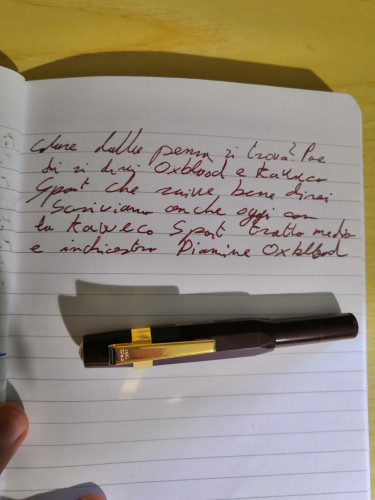 colore della penna si trova? Poe
di si direi Oxblood e Kaweco
Sport che scrive bene direi
Scriviamo anche oggi con
la Kaweco Sport tratto medio
e inchiostro Diamine Oxblood